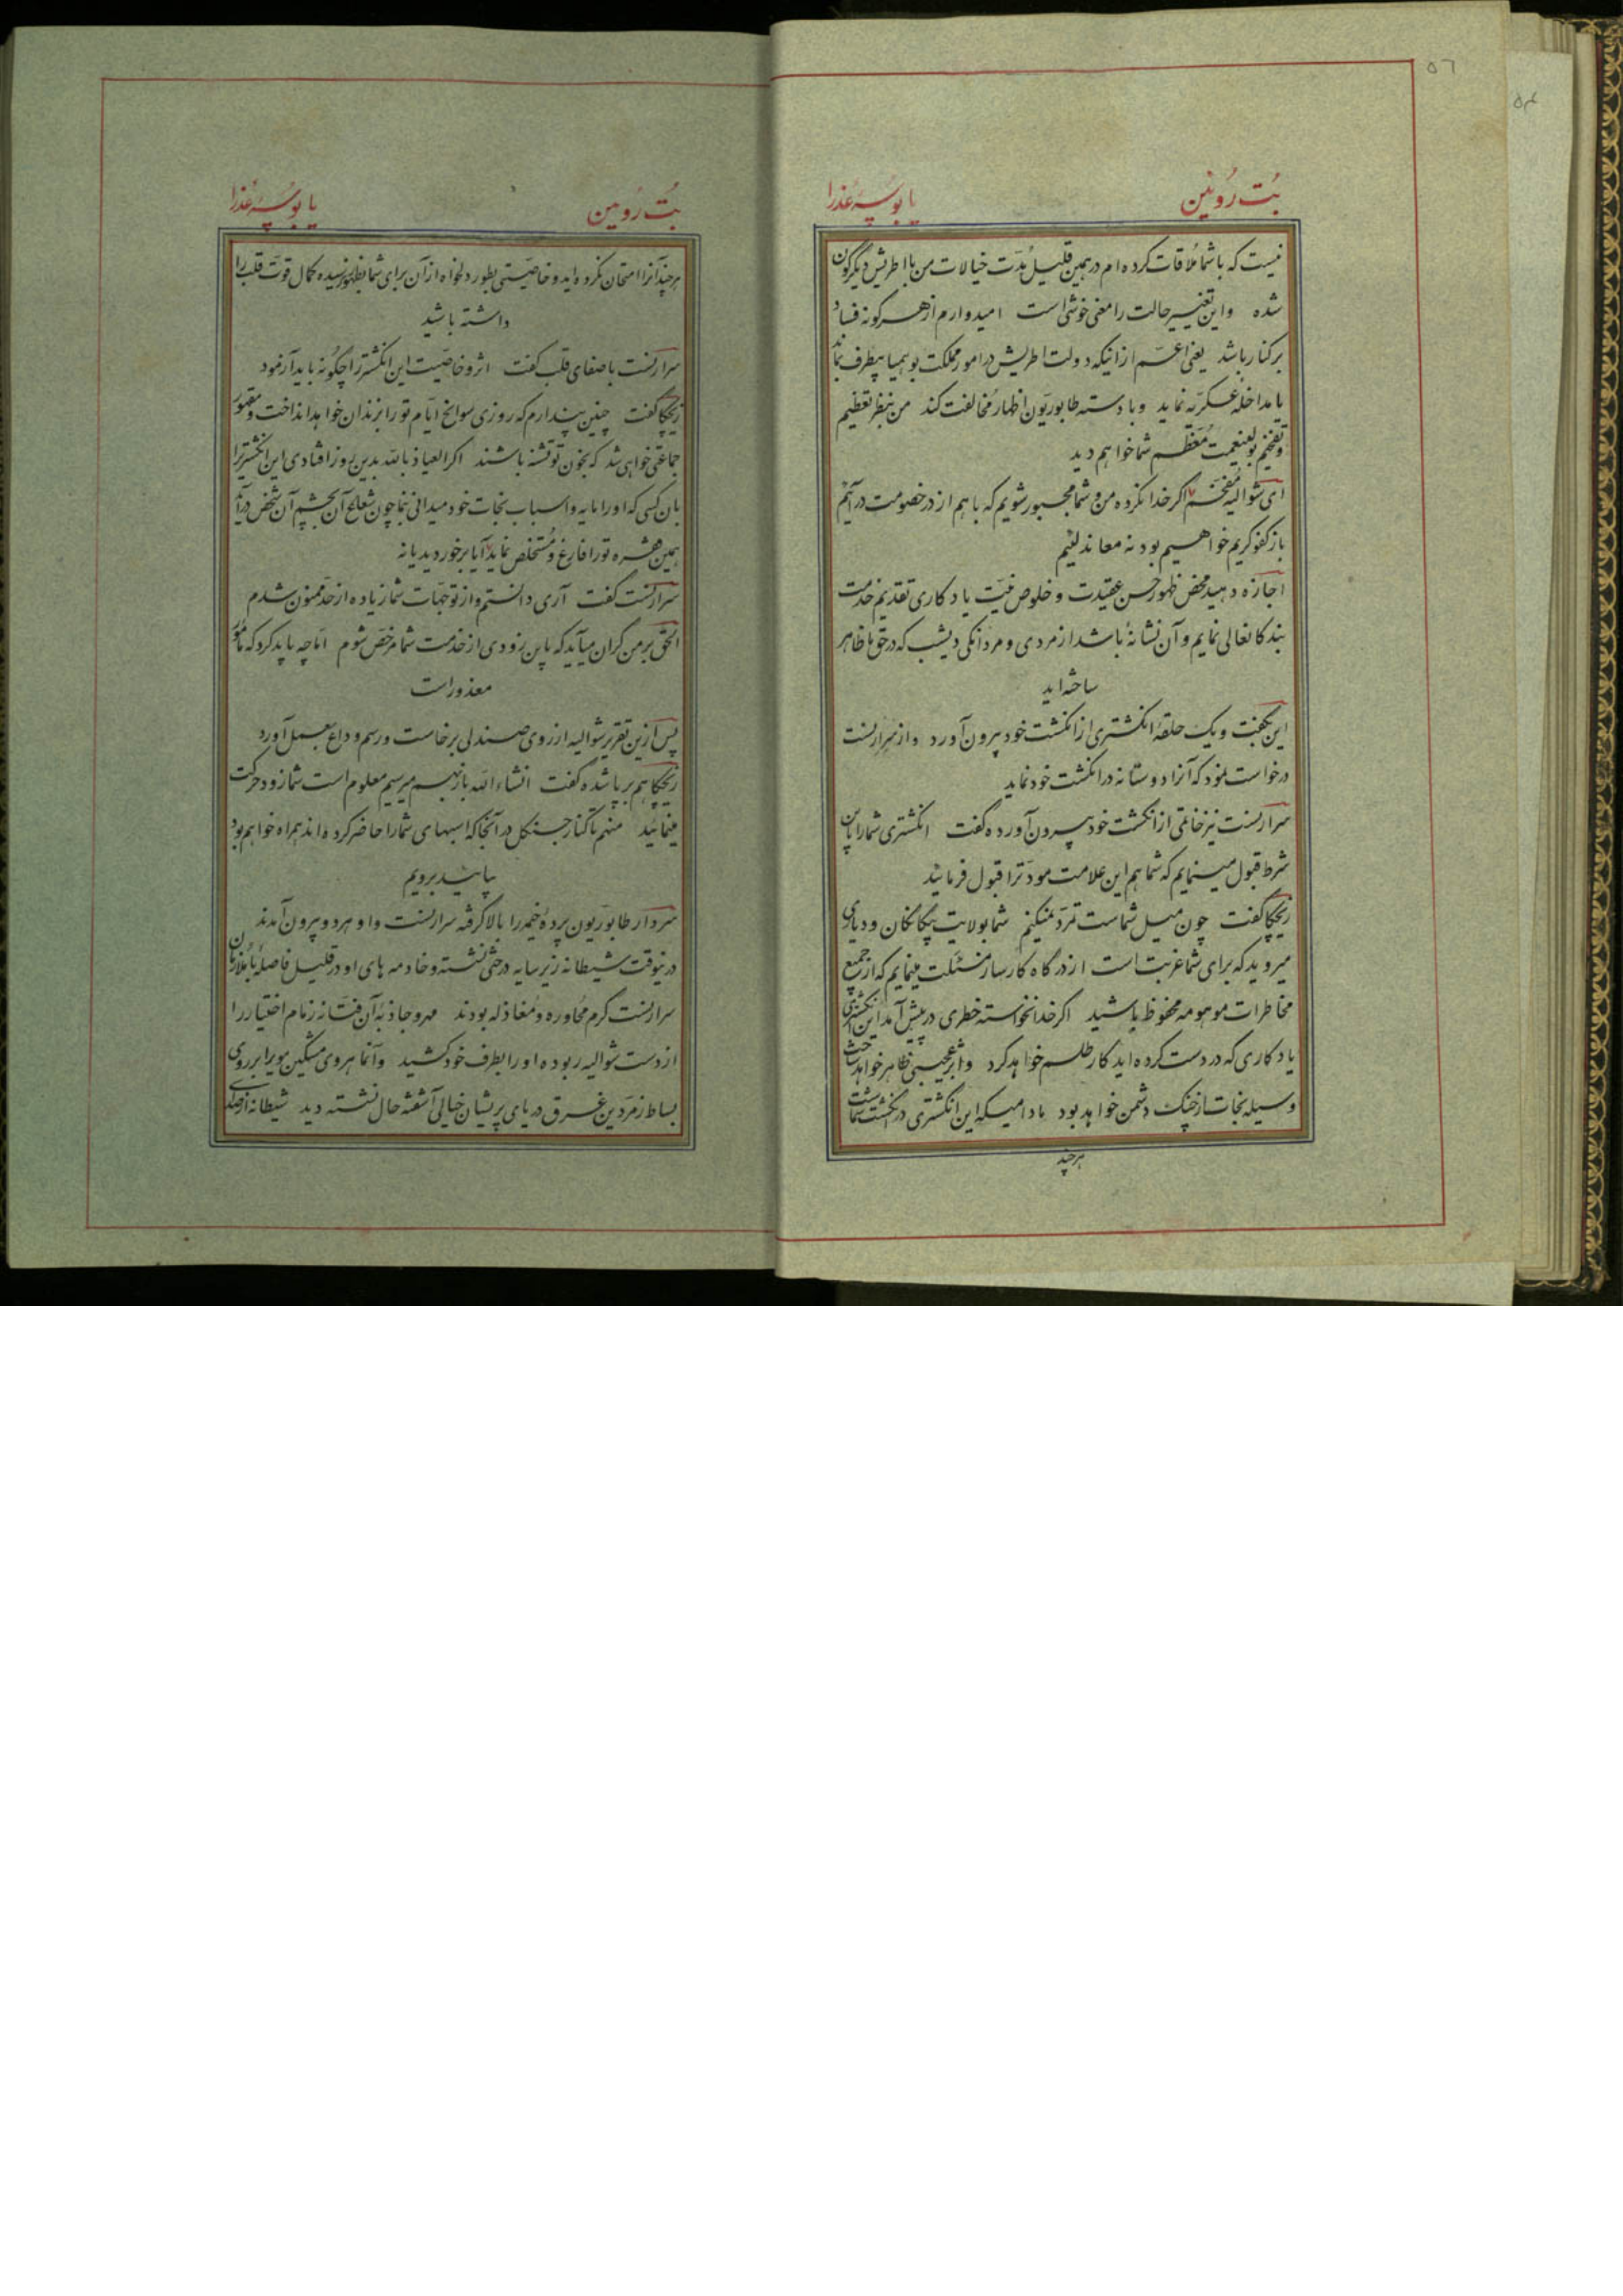 ۵٦
۵۴
بُت رُوئین
یا بُوسهٔ عُذرا
نیست که با شما مُلاقات کرده‌ام در همین قلیل مُدّت خیالات من با اطریش دیگرگون
شده و این تغییر حالت را معنی خوشی است امیدوارم از هرگونه فساد
برکنار باشد یعنی اعمّ از اینکه دولت اطریش در امور مملکت بوهمیا بیطرف بماند
یا مداخلهٔ عسکریّه نماید و با دسته طابوریّون اظهار مُخالفت کند من بنظر تعظیم
و تفخیم بولینعمت مُعظّم شما خواهم دید
ای شوالیه مُفخّم اگر خدا نکرده من و شما مجبور شویم که با هم از در خصومت درآئیم
باز کفو کریم خواهیم بود نه معاند لئیم
اجازه دهید محض ظهور حسن عقیدت و خلوص نیّت یادکاری تقدیم خدمت
بندکانعالی نمایم و آن نشانهٔ باشد از مردی و مردانکی دیشب که در حقّ ما ظاهر
ساخته‌اید
این بگفت و یک حلقهٔ انکشتری از انکشت خود بیرون آورد و از سرارنست
درخواست نمود که آنرا دوستانه در انکشت خود نماید
سرارنست نیز خاتمی از انکشت خود بیرون آورده گفت انکشتری شما را باین
شرط قبول مینمایم که شما هم این علامت مودّت را قبول فرمائید
زیچکا گفت چون میل شماست تمرّد نمیکنم شما بولایت بیکانکان و دیاری
میروید که برای شما غربت است از درگاه کارساز مسئلت مینمایم که از جمیع
مخاطرات موهومه محفوظ باشید اکر خدا نخواسته خطری در پیش آمد این انکشتری
یادکاری که در دست کرده‌اید کار طلسم خواهد کرد و اثر عجیبی ظاهر خواهد ساخت
وسیله نجات از چنک دشمن خواهد بود مادامیکه این انکشتری در انکشت شماست
هر چند
بُت رُوئین
یا بُوسهٔ عُذرا
هر چند آنرا امتحان نکرده‌اید و خاصّیتی بطور دلخواه از آن برای شما بظهور نرسیده کمال قوّت قلب را
داشته باشید
سرارنست با صفای قلب گفت اثر و خاصّیت این انکشتر را چکونه باید آزمود
زیچکا گفت چنین پندارم که روزی سوانح ایّام تو را بزندان خواهد انداخت و مقهور
جماعتی خواهی شد که بخون تو تشنه باشند اکر العیاذ بالله بدین روز افتادی این انکشتر را
بان کسی که او را مایه و اسباب نجات خود میدانی بنما چون شعاع آن بچشم آن شخص درآید
بهمین اشره تو را فارغ و مُستخلص نماید آیا برخوردید یا نه
سرارنست گفت آری دانستم و از توجّهات شما زیاده از حدّ ممنون شدم
الحقّ بر من گران میآید که باین زودی از خدمت شما مرخّص شوم امّا چه باید کرد که مأمور
معذور است
پس ازین تقریر شوالیه از روی صندلی برخاست و رسم وداع بعمل آورد
زیچکا هم برپا شده گفت انشاءالله باز بهم میرسیم معلوم است شما زود حرکت
مینمائید منهم تا کنار جنگل در آنجا که اسبهای شما را حاضر کرده‌اند همراه خواهم بود
بیائید برویم
سردار طابوریّون پرده خیمه را بالا کرفته سرارنست و او هر دو بیرون آمدند
در نیوقت شیطانه زیر سایه درختی نشسته و خادمه های او در قلیل فاصلهٔ با ملازمان
سرارنست کرم مُحاوره و مُغازله بودند مهر و جاذبهٔ آن فتّانه زمام اختیار را
از دست شوالیه ربوده او را بطرف خود کشید و آنماهروی مشکین مو را بر روی
بساط زمرّدین غرق دریای پریشان خیالی آشفته حال نشسته دید شیطانه از صدای